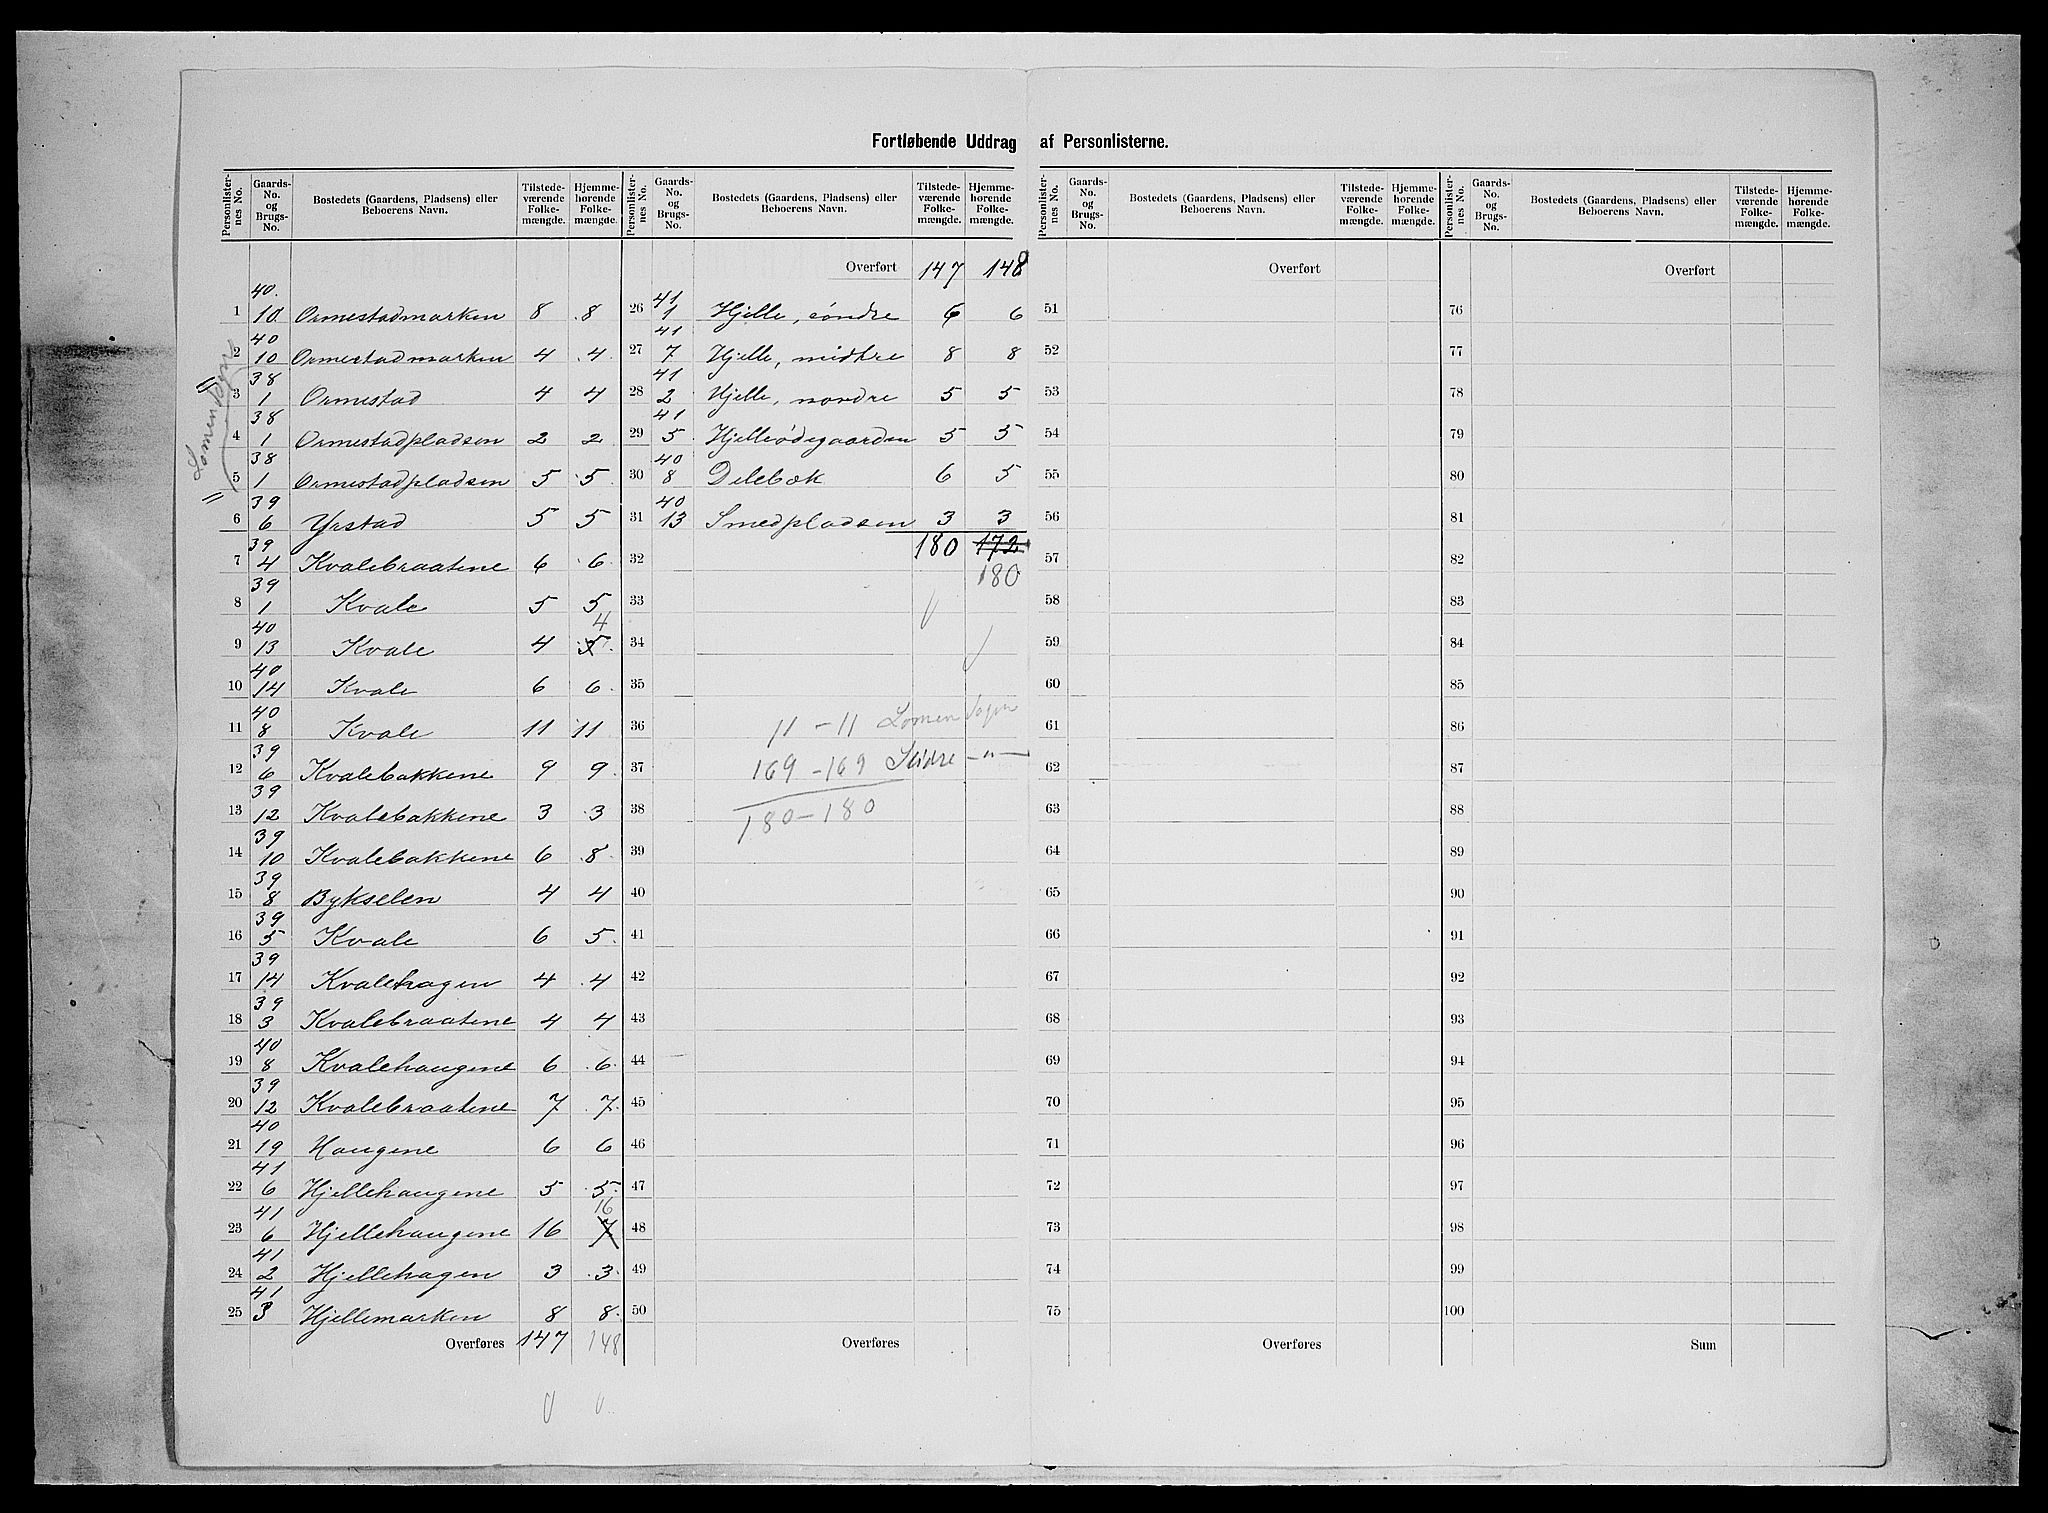 Fortløbende Uddrag af Personlisterne.
Personlisternes No. | Gaards-No. og Brugs-No. | Bostedets (Gaardens, Pladsens) eller Beboerens Navn. | Tilstedeværende Folkemængde. | Hjemmehørende Folkemængde.
Personlisternes No. | Gaards-No. og Brugs-No. | Bostedets (Gaardens, Pladsens) eller Beboerens Navn. | Tilstedeværende Folkemængde. | Hjemmehørende Folkemængde.
Personlisternes No. | Gaards-No. og Brugs-No. | Bostedets (Gaardens, Pladsens) eller Beboerens Navn. | Tilstedeværende Folkemængde. | Hjemmehørende Folkemængde.
Personlisternes No. | Gaards-No. og Brugs-No. | Bostedets (Gaardens, Pladsens) eller Beboerens Navn. | Tilstedeværende Folkemængde. | Hjemmehørende Folkemængde.
"Lomen Sogn"
1 40. 10 Ormestadmarken 8 8
2 40 10 Ormestadmarken 4 4
3 38 1 Ormestad 4 4
4 38 1 Ormestadpladsen 2 2
5 38 1 Ormestadpladsen 5 5
6 39 6 Yrstad 5 5
7 39 4 Kvalebraatene 6 6
8 39 1 Kvale 5 5
9 40 13 Kvale 4 5 4
10 40 14 Kvale 6 6
11 40 8 Kvale 11 11
12 39 6 Kvalebakkene 9 9
13 39 12 Kvalebakkene 3 3
14 39 10 Kvalebakkene 6 8
15 39 8 Bykselen 4 4
16 39 5 Kvale 6 5
17 39 14 Kvalehagen 4 4
18 39 3 Kvalebraatene 4 4
19 40 8 Kvalehaugene 6 6
20 39 12 Kvalebraatene 7 7
21 40 19 Haugene 6 6
22 41 6 Hjellehaugene 5 5
23 41 6 Hjellehaugene 16 7 16
24 41 2 Hjellehagen 3 3
25 41 3 Hjellemarken 8 8
Overføres 147 148
Overført 147 148
26 41 1 Hjelle, søndre 6 6
27 41 7 Hjelle, midtre 8 8
28 41 2 Hjelle, nordre 5 5
29 41 5 Hjelleødegaarden 5 5
30 40 8 Delebæk 6 5
31 40 13 Smedpladsen 3 3
32 180 172
180
33
34
35
36 11 - 11 Lomen Sogn
37 169 - 169 Slidre - " -
38 180 - 180
39
40
41
42
43
44
45
46
47
48
49
50
Overføres
Overført
51
52
53
54
55
56
57
58
59
60
61
62
63
64
65
66
67
68
69
70
71
72
73
74
75
Overføres
Overført
76
77
78
79
80
81
82
83
84
85
86
87
88
89
90
91
92
93
94
95
96
97
98
99
100
Sum